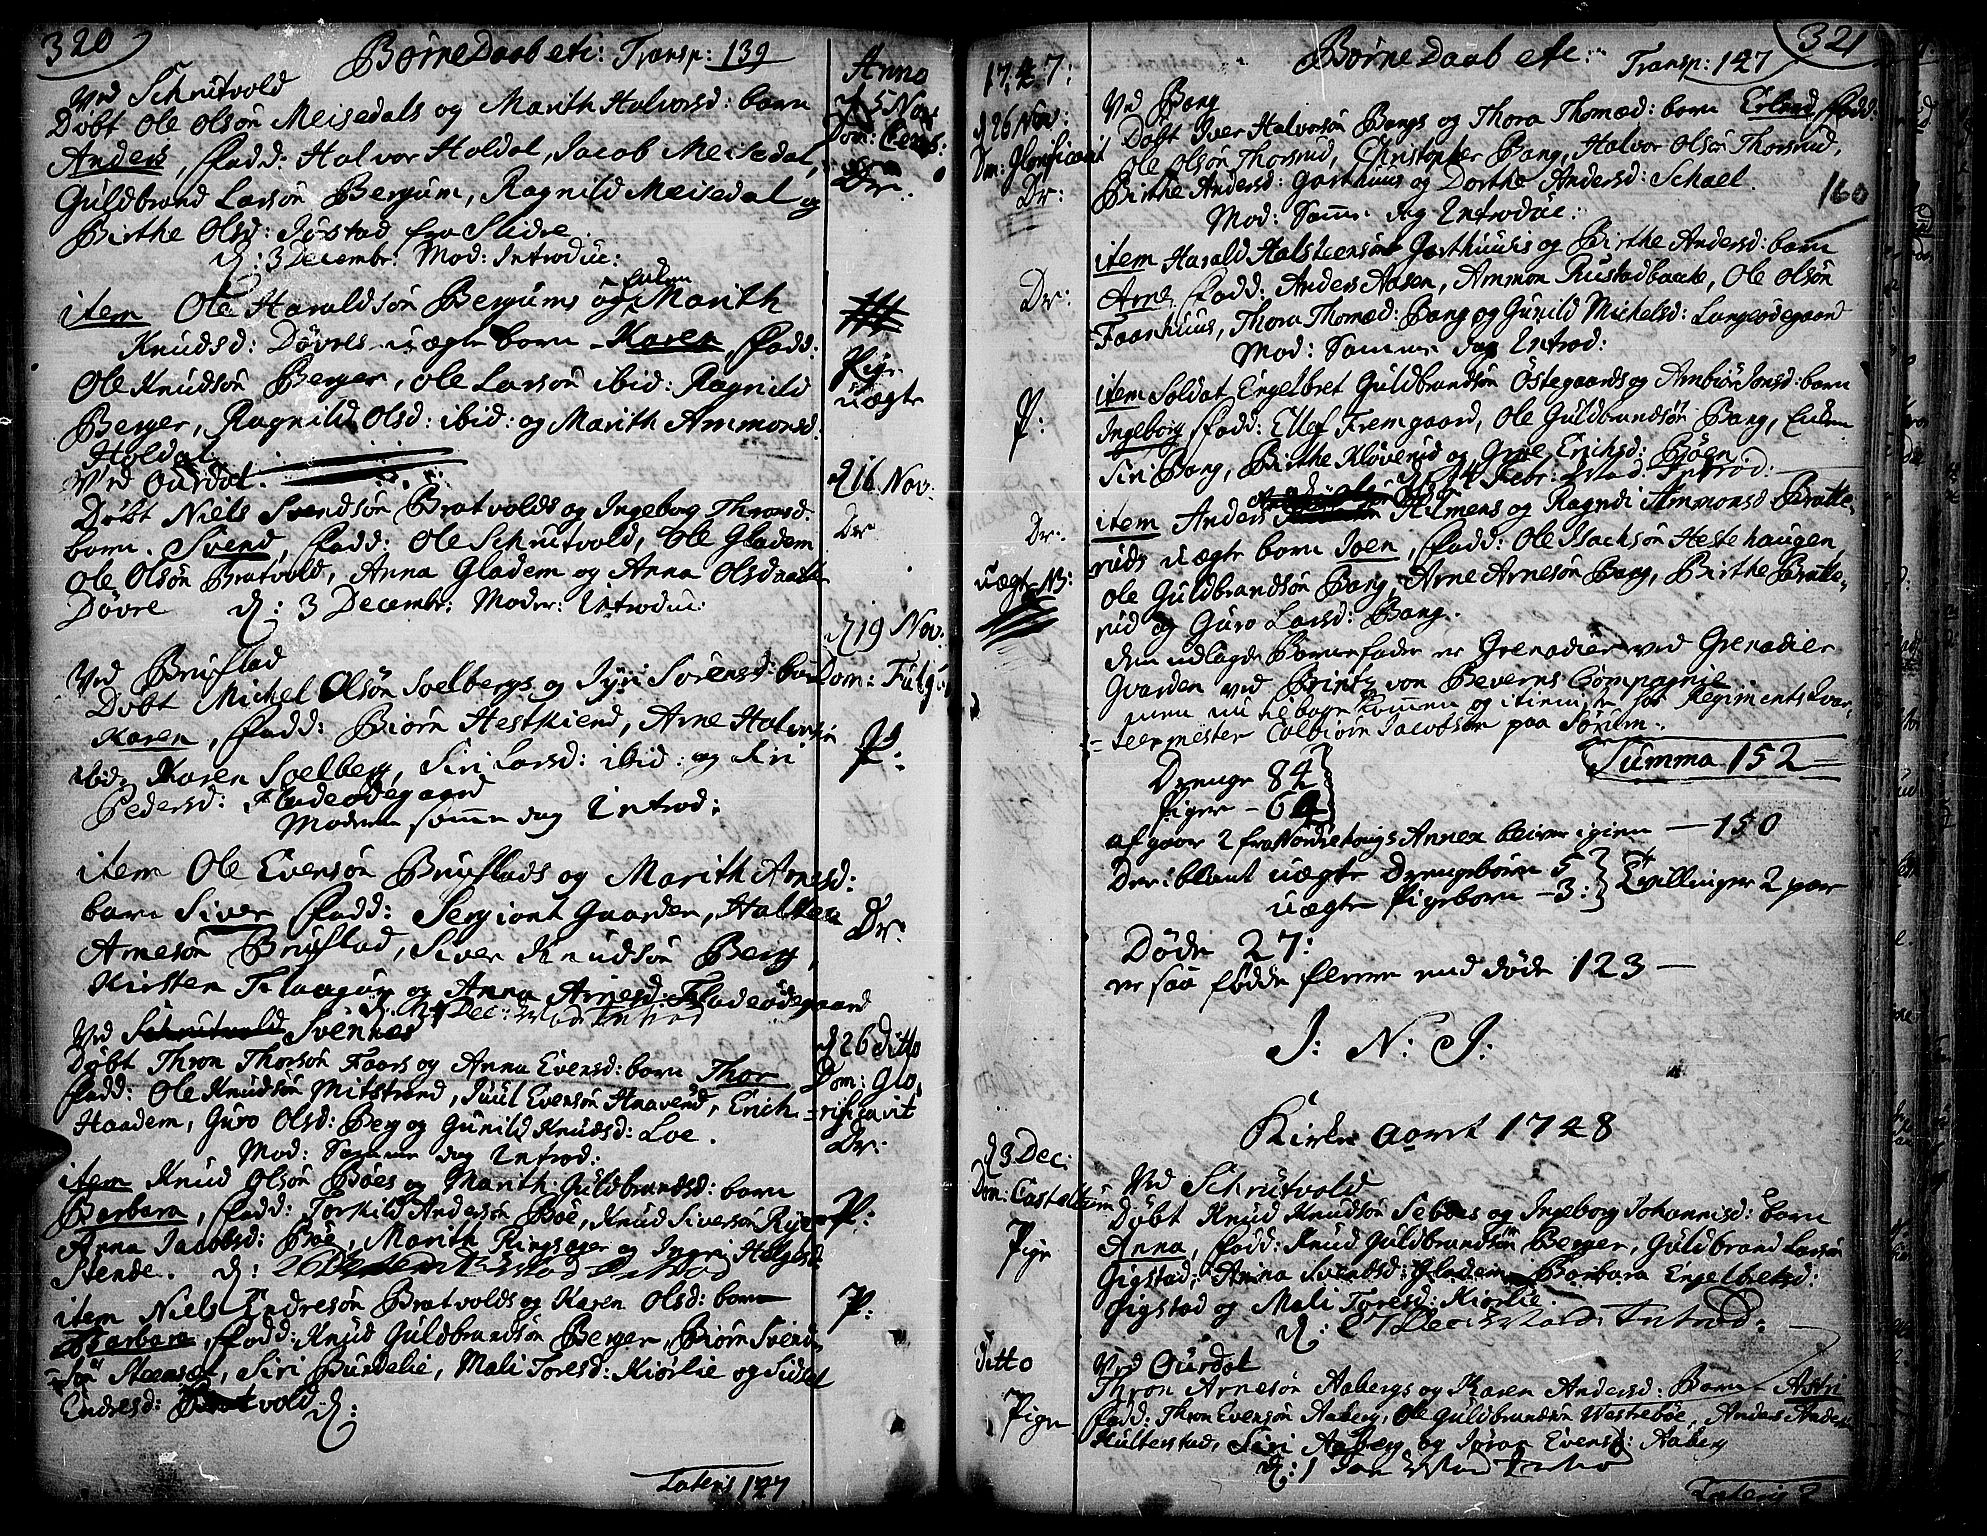 320
Børne Daab etc: Transp: 139
Anno
Ved Schrutvold
Døbt Ole Olsøn Meisedals og Marith Halvorsd: barn
Anders, fadd: Halvor Holdal, Jacob Meisedal,
Guldbrand Larsøn Bergum, Ragnild Meisedal og
Birthe Olsd: Jøstad fra Slidre.
d: 3 Decembr: Mod: Introduc:
5 Nov
Dom:
Dr.
item Ole Haraldsøn Bergums og Marith
Knudsd: Døvres uægte barn Karen, fadd:
Ole Knudsøn Berger, Ole Larsøn ibid: Ragnild
Berger, Ragnild Olsd: ibid: og Marith Ammonsd:
Holdal
Pige
uægte
Ved Ourdal.
Døbt Niels Svendsøn Bratvolds og Ingeborg Thronsd:
barn. Svend, fadd: Ole Schrutvold, Ole Gladem
Ole Olsøn Bratvold, Anna Gladem og Anna Olsdaatter
Døvre d: 3 Decembr: Moder: Introduc:
d 16 Nov.
Dr
Ved Bruflad
Døbt Michel Olsøn Soelbergs og Syri Sørensd: barn
Karen, fadd: Biørn Hestkiend, Arne Halvorsøn
ibid, Karen Soelberg, Siri Larsd: ibid: og Siri
Pedersd: Fladeødegaard
Moderen samme dag Introd:
d 19 Nov.
P:
item Ole Evensøn Bruflads og Marith Arnesd:
barn Siver fadd: Sergiant Gaarder, Halsten
Arnesøn Bruflad, Siver Knudsøn Berg,
Kirsten og Anna Arnesd: Fladeødegaard
Dec: Mod Introd
Dr:
Ved Schrutvold Svennæs
Døbt Thron Thorsøn Faars og Anna Evensd: barn Thor
fadd: Ole Knudsøn Mitstrand, Juul Evensøn, Erich
Haadem, Guro Olsd: Berg og Gunild Knudsd: Loe.
Mod: Samme dag Introd:
d 26 ditto
Dom: Glo-
rificavit
Dr:
item Knud Olsøn Bøes og Marith Guldbrandsd: barn
Barbara, fadd: Torkild Andersøn Bøe, Knud Siversøn
Anna Jacobsd: Bøe, Marith Ringsager og Ingri Helgesd:
Stende. d: 26 Mod Introd
P:
item Niels Endresøn Bratvolds og Karen Olsd: barn
Barbara, fadd: Knud Guldbrandsøn Berger, Biørn Svend-
søn Steensæt, Siri Bundelie, Mali Toresd: Kiørlie og Sidsel
Endresd: Bratvold. d:
P:
Lateris 127
321
1747:
Børne Daab etc: Transp: 127
d 26 Nov:
Dom: Glorificavit
Dr:
Ved Bang
Døbt Iver Halvorsøn Bangs og Thora Thomæd: barn Erland, fadd:
Ole Olsøn Thorsrud, Christopher Bang, Halvor Olsøn Thorsrud,
Birthe Andersd: Garthuus og Dorthe Andersd: Schael.
Mod: Samme dag Introduc:
160
item Harald Halsteensøn Garthuus og Birthe Andersd: barn
Arne, fadd: Anders Aasen, Ammon Rustadbakke, Ole Olsøn
Faarhuus, Thora Thomæd: Bang og Gunild Michelsd: Langeødegaard
Mod: Samme dag Introd:
Dr:
item Soldat Engelbret Guldbrandsøn Østegaards og Ambiør Jonsd: barn
Ingeborg, fadd: Ellef Fremgaard, Ole Guldbrandsøn Bang, Enken
Siri Bang, Birthe Kløverud og Groe Erichsd: Bjøen
14 Febr: Mod Introd:
P:
item Anders Hilmens og Ragndi Ammonsd: Bratte-
ruds uægte barn Joen, fadd: Ole Isachsøn Hestehaugen
Ole Guldbrandsøn Bang, Arne Arnesøn Bang, Birthe Bratte-
rud og Guro Larsd: Bang.
den udlagde Barnefader er Grenadier ved Grenadier
Gvarden ved Printz von Beverns Compagnie
men nu hebagekommen og itienne hos Regimentskvar-
teermester Colbiørn Jacobsøn paa Sørum.
Dr:
uægte NB:
Summa 152
Drenge 84
Piger - 68
afgaaer 2 fra Nordretnigs Annex bliver igien - 150
Der: blant uægte Drengebørn 5
uægte Pigebørn - 3:
Tvillinger 2 par
Døde 27:
er saa fødde flere end døde 123 -
I: N: J:
Kirke aaret 1748
d 3 Dec:
Pige
Ved Schrutvold
Døbt Knud Knudsøn Sebøes og Ingeborg Johannisd: barn
Anna, fadd: Knud Guldbrandsøn Berger, Guldbrand Larsøn
Gigstad, Anna Svendsd: Gladem, Barbara Engelbretsd:
Gigstad og Mali Toresd: Kiørlie.
d: 27 Dec: Mod: Introd:
ditto
Pige
Ved Ourdal
Thron Arnesøn Aabergs og Karen Andersd: Barn Astri
fadd: Thron Evensøn Aaberg, Ole Guldbrandsøn Westrebøe, Anders Anders
Kulterstad, Siri Aaberg og Jøran Evensd: Aaberg
d: 1 Jan Mod Introd
Lateris 2